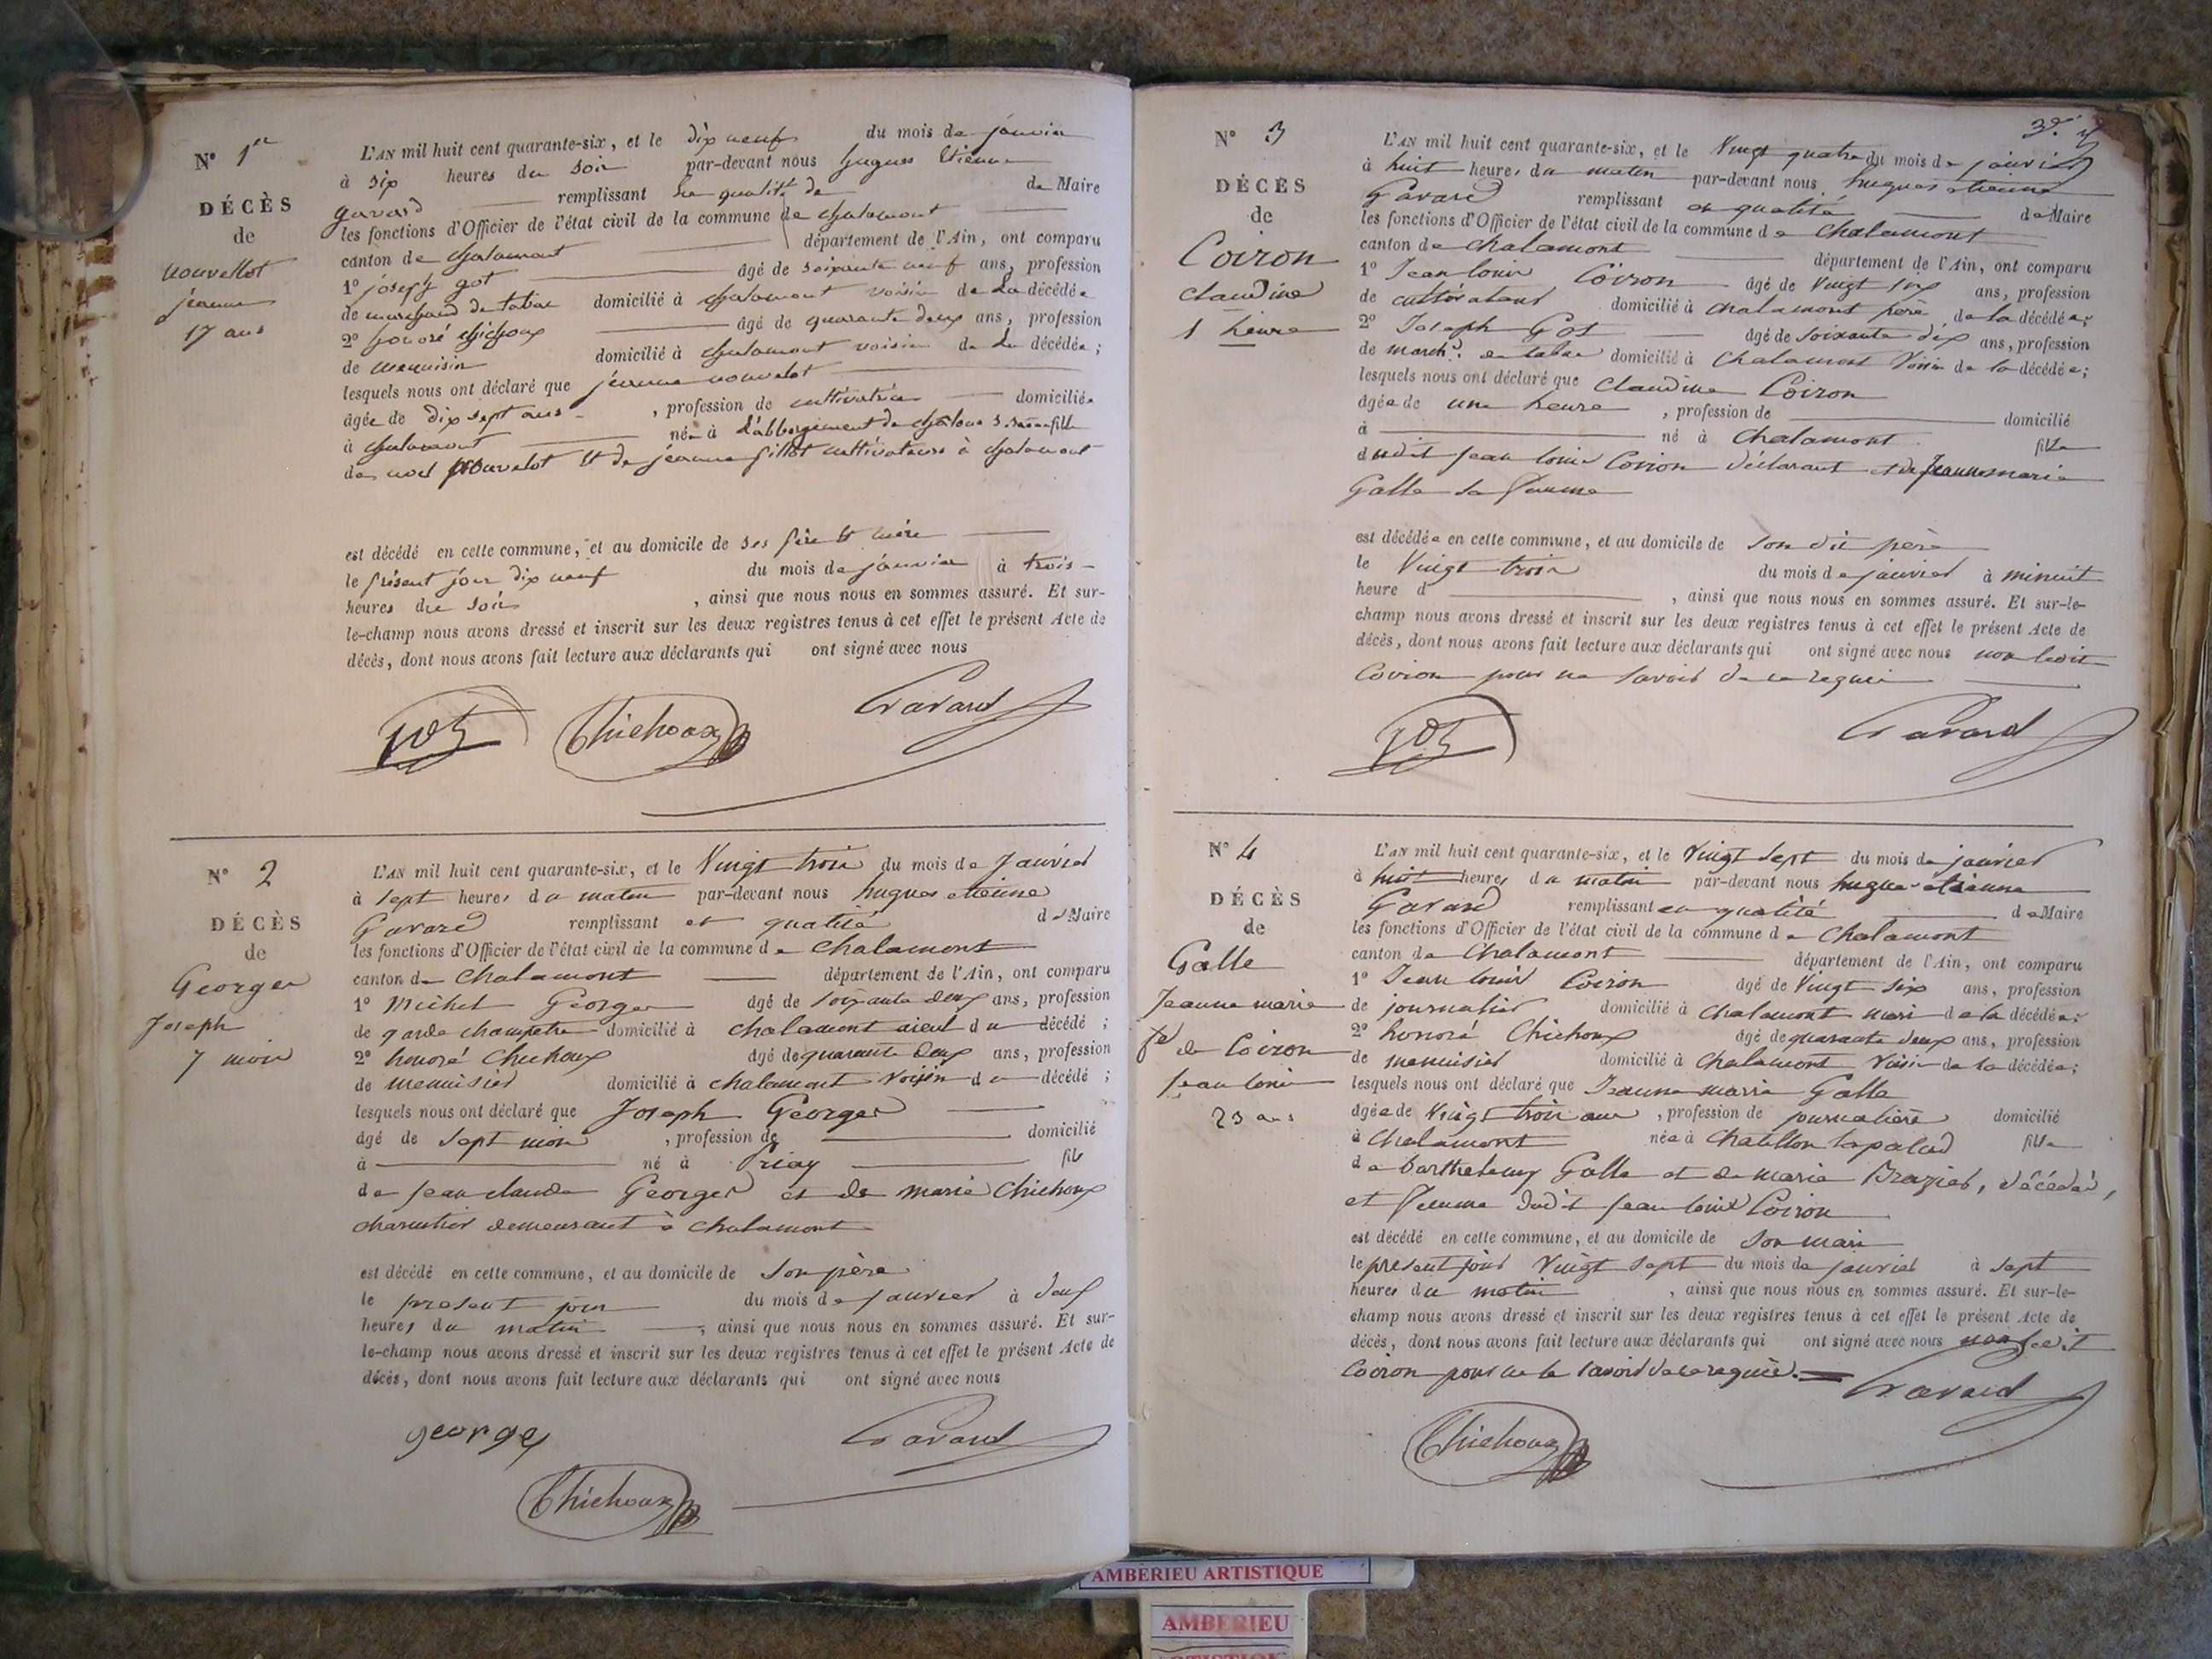 N° 1er
DÉCÈS
de
nouvellot
jeanne
17 ans
L'AN mil huit cent quarante-six, et le dix neuf du mois de janvier
à six heures du soir par-devant nous hugues Etienne
gavard remplissant en qualité de de Maire
les fonctions d'Officier de l'état civil de la commune de chalamont
canton de chalamont département de l'Ain, ont comparu
1° joseph got âgé de soixante neuf ans, profession
de marchand de tabac domicilié à chalamont voisin de La décédée
2° honoré chichoux âgé de quarante deux ans, profession
de menuisier domicilié à chalamont voisin de La décédée ;
lesquels nous ont déclaré que jeanne nouvelot
âgée de dix sept ans , profession de cultivatrice domiciliée
à chalamont née à L'abbergement de chalons s. saone fille
de noel nouvelot et de jeanne fillot cultivateurs à chalamont
est décédé en cette commune, et au domicile de ses père et mère
le présent jour dix neuf du mois de janvier à trois
heures du soir , ainsi que nous nous en sommes assuré. Et sur-
le-champ nous avons dressé et inscrit sur les deux registres tenus à cet effet le présent Acte de
décès, dont nous avons fait lecture aux déclarants qui ont signé avec nous
got Chichoux Gavard
N° 2
DÉCÈS
de
Georger
Joseph
7 mois
L'AN mil huit cent quarante-six, et le Vingt trois du mois de Janvier
à sept heures du matin par-devant nous hugues etienne
Gavard remplissant en qualité de Maire
les fonctions d'Officier de l'état civil de la commune de Chalamont
canton de Chalamont département de l'Ain, ont comparu
1° Michel Georger âgé de soixante deux ans, profession
de garde champetre domicilié à chalamont aieul du décédé ;
2° honoré Chichoux âgé de quarante deux ans, profession
de menuisier domicilié à chalamont Voisin du décédé ;
lesquels nous ont déclaré que Joseph Georger
âgé de sept mois , profession de domicilié
à né à Priay fils
de jean claude Georger et de marie Chichoux
charcutier demeurant à Chalamont
est décédé en cette commune, et au domicile de son père
le present jour du mois de janvier à deux
heures du matin , ainsi que nous nous en sommes assuré. Et sur-
le-champ nous avons dressé et inscrit sur les deux registres tenus à cet effet le présent Acte de
décès, dont nous avons fait lecture aux déclarants qui ont signé avec nous
george Gavard
Chichoux
N° 3
DÉCÈS
de
Coiron
claudine
1 heure
L'AN mil huit cent quarante-six, et le Vingt quatre du mois de janvier
à huit heures du matin par-devant nous hugues etienne
Gavard remplissant en qualité de Maire
les fonctions d'Officier de l'état civil de la commune de Chalamont
canton de chalamont département de l'Ain, ont comparu
1° Jean louis Coiron âgé de Vingt six ans, profession
de cultivateur domicilié à chalamont père de la décédée ;
2° Joseph Got âgé de soixante dix ans, profession
de march.d de tabac domicilié à Chalamont Voisin de la décédée ;
lesquels nous ont déclaré que Claudine Coiron
âgée de une heure , profession de domicilié
à né à Chalamont fille
dudit jean louis Coiron déclarant et de Jeanne marie
Galle sa femme
est décédée en cette commune, et au domicile de son dit père
le Vingt trois du mois de janvier à minuit
heure d , ainsi que nous nous en sommes assuré. Et sur-le-
champ nous avons dressé et inscrit sur les deux registres tenus à cet effet le présent Acte de
décès, dont nous avons fait lecture aux déclarants qui ont signé avec nous non ledit
Coiron pour ne savoir de ce requis
got Gavard
N° 4
DÉCÈS
de
Galle
Jeanne marie
fe de Coiron
jean louis
23 ans
L'AN mil huit cent quarante-six, et le Vingt sept du mois de janvier
à huit heures du matin par-devant nous hugues etienne
Gavard remplissant en qualité de Maire
les fonctions d'Officier de l'état civil de la commune de Chalamont
canton de Chalamont département de l'Ain, ont comparu
1° Jean louis Coiron âgé de Vingt six ans, profession
de journalier domicilié à Chalamont mari de la décédée ;
2° honoré Chichoux âgé de quarante deux ans, profession
de menuisier domicilié à Chalamont Voisin de la décédée ;
lesquels nous ont déclaré que Jeanne marie Galle
âgée de Vingt trois ans , profession de journalière domicilié
à Chalamont née à Chatillon lapalud fille
de barthelemy Galle et de marie Brazier, décédés,
et femme dudit jean louis Coiron
est décédé en cette commune, et au domicile de son mari
le present jour Vingt sept du mois de janvier à sept
heures du matin , ainsi que nous nous en sommes assuré. Et sur-le-
champ nous avons dressé et inscrit sur les deux registres tenus à cet effet le présent Acte de
décès, dont nous avons fait lecture aux déclarants qui ont signé avec nous non ledit
Coiron pour ne le savoir de ce requis.
Gavard
Chichoux
AMBERIEU ARTISTIQUE
AMBERIEU
ARTISTIQUE